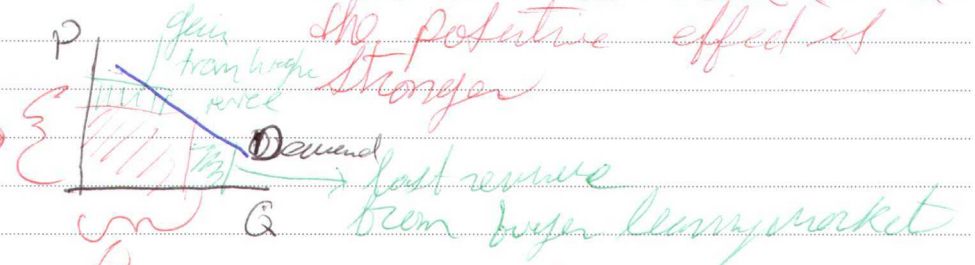 P
gain
from higher
the potential effect is
stronger
Demand
lost revenue
Q
from buyer leaving market